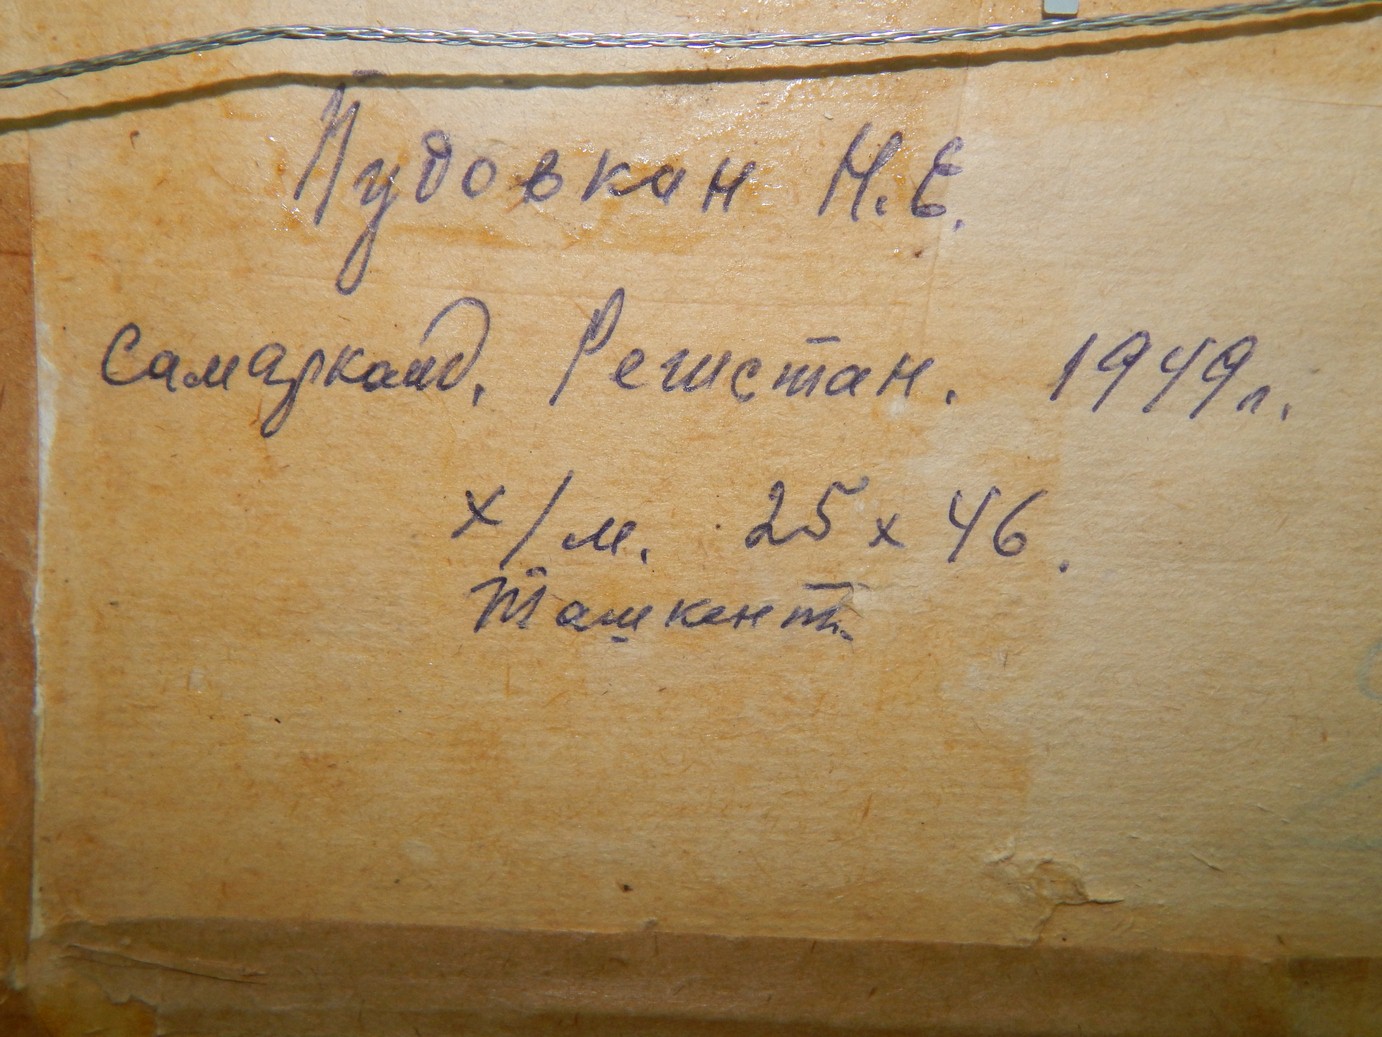 Пудовкин Н.Е.
Самарканд. Регистан. 1949г.
х/м. 25х46.
Ташкент.